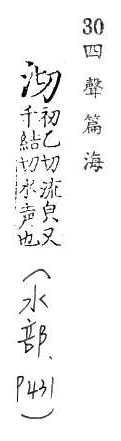 30四聲篇海
沏
初乙切流皃又
千結切水声也
(水部、P431)